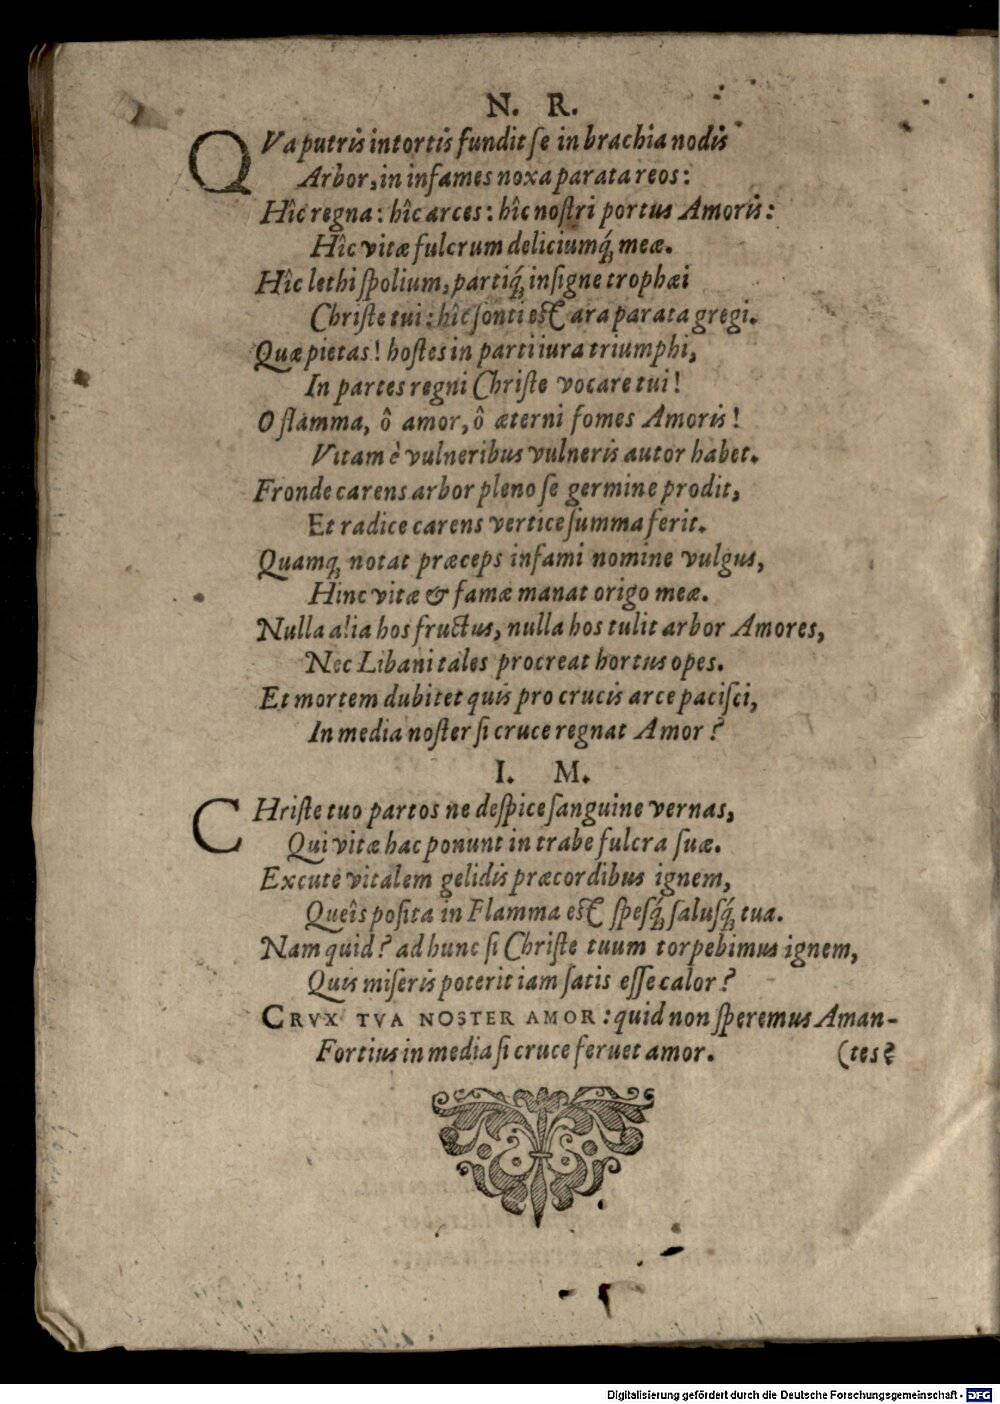 N. R.
QVa putris intortis fundit se in brachia nodis
Arbor, in infames noxa parata reos:
Hîc regna: hîc arces: hîc nostri portus Amoris:
Hîc vitæ fulcrum deliciumq́; meæ.
Hîc lethi spolium, partiq́; insigne trophæi
Christe tui: hîc sonti est ara parata gregi.
Quæ pietas! hostes in parti iura triumphi,
In partes regni Christe vocare tui!
O flamma, ô amor, ô æterni fomes Amoris!
Vitam è vulneribus vulneris autor habet.
Fronde carens arbor pleno se germine prodit,
Et radice carens vertice summa ferit.
Quamq; notat præceps infami nomine vulgus,
Hinc vitæ & famæ manat origo meæ.
Nulla alia hos fructus, nulla hos tulit arbor Amores,
Nec Libani tales procreat hortus opes.
Et mortem dubitet quis pro crucis arce pacisci,
In media noster si cruce regnat Amor?
I. M.
CHriste tuo partos ne despice sanguine vernas,
Qui vitæ hac ponunt in trabe fulcra suæ.
Excute vitalem gelidis præcordibus ignem,
Queîs posita in Flamma est spesq́; salusq́; tua.
Nam quid? ad hunc si Christe tuum torpebimus ignem,
Quis miseris poterit iam satis esse calor?
CRVX TVA NOSTER AMOR: quid non speremus Aman-
Fortius in media si cruce feruet amor. (tes?
Digitalisierung gefördert durch die Deutsche Forschungsgemeinschaft - DFG